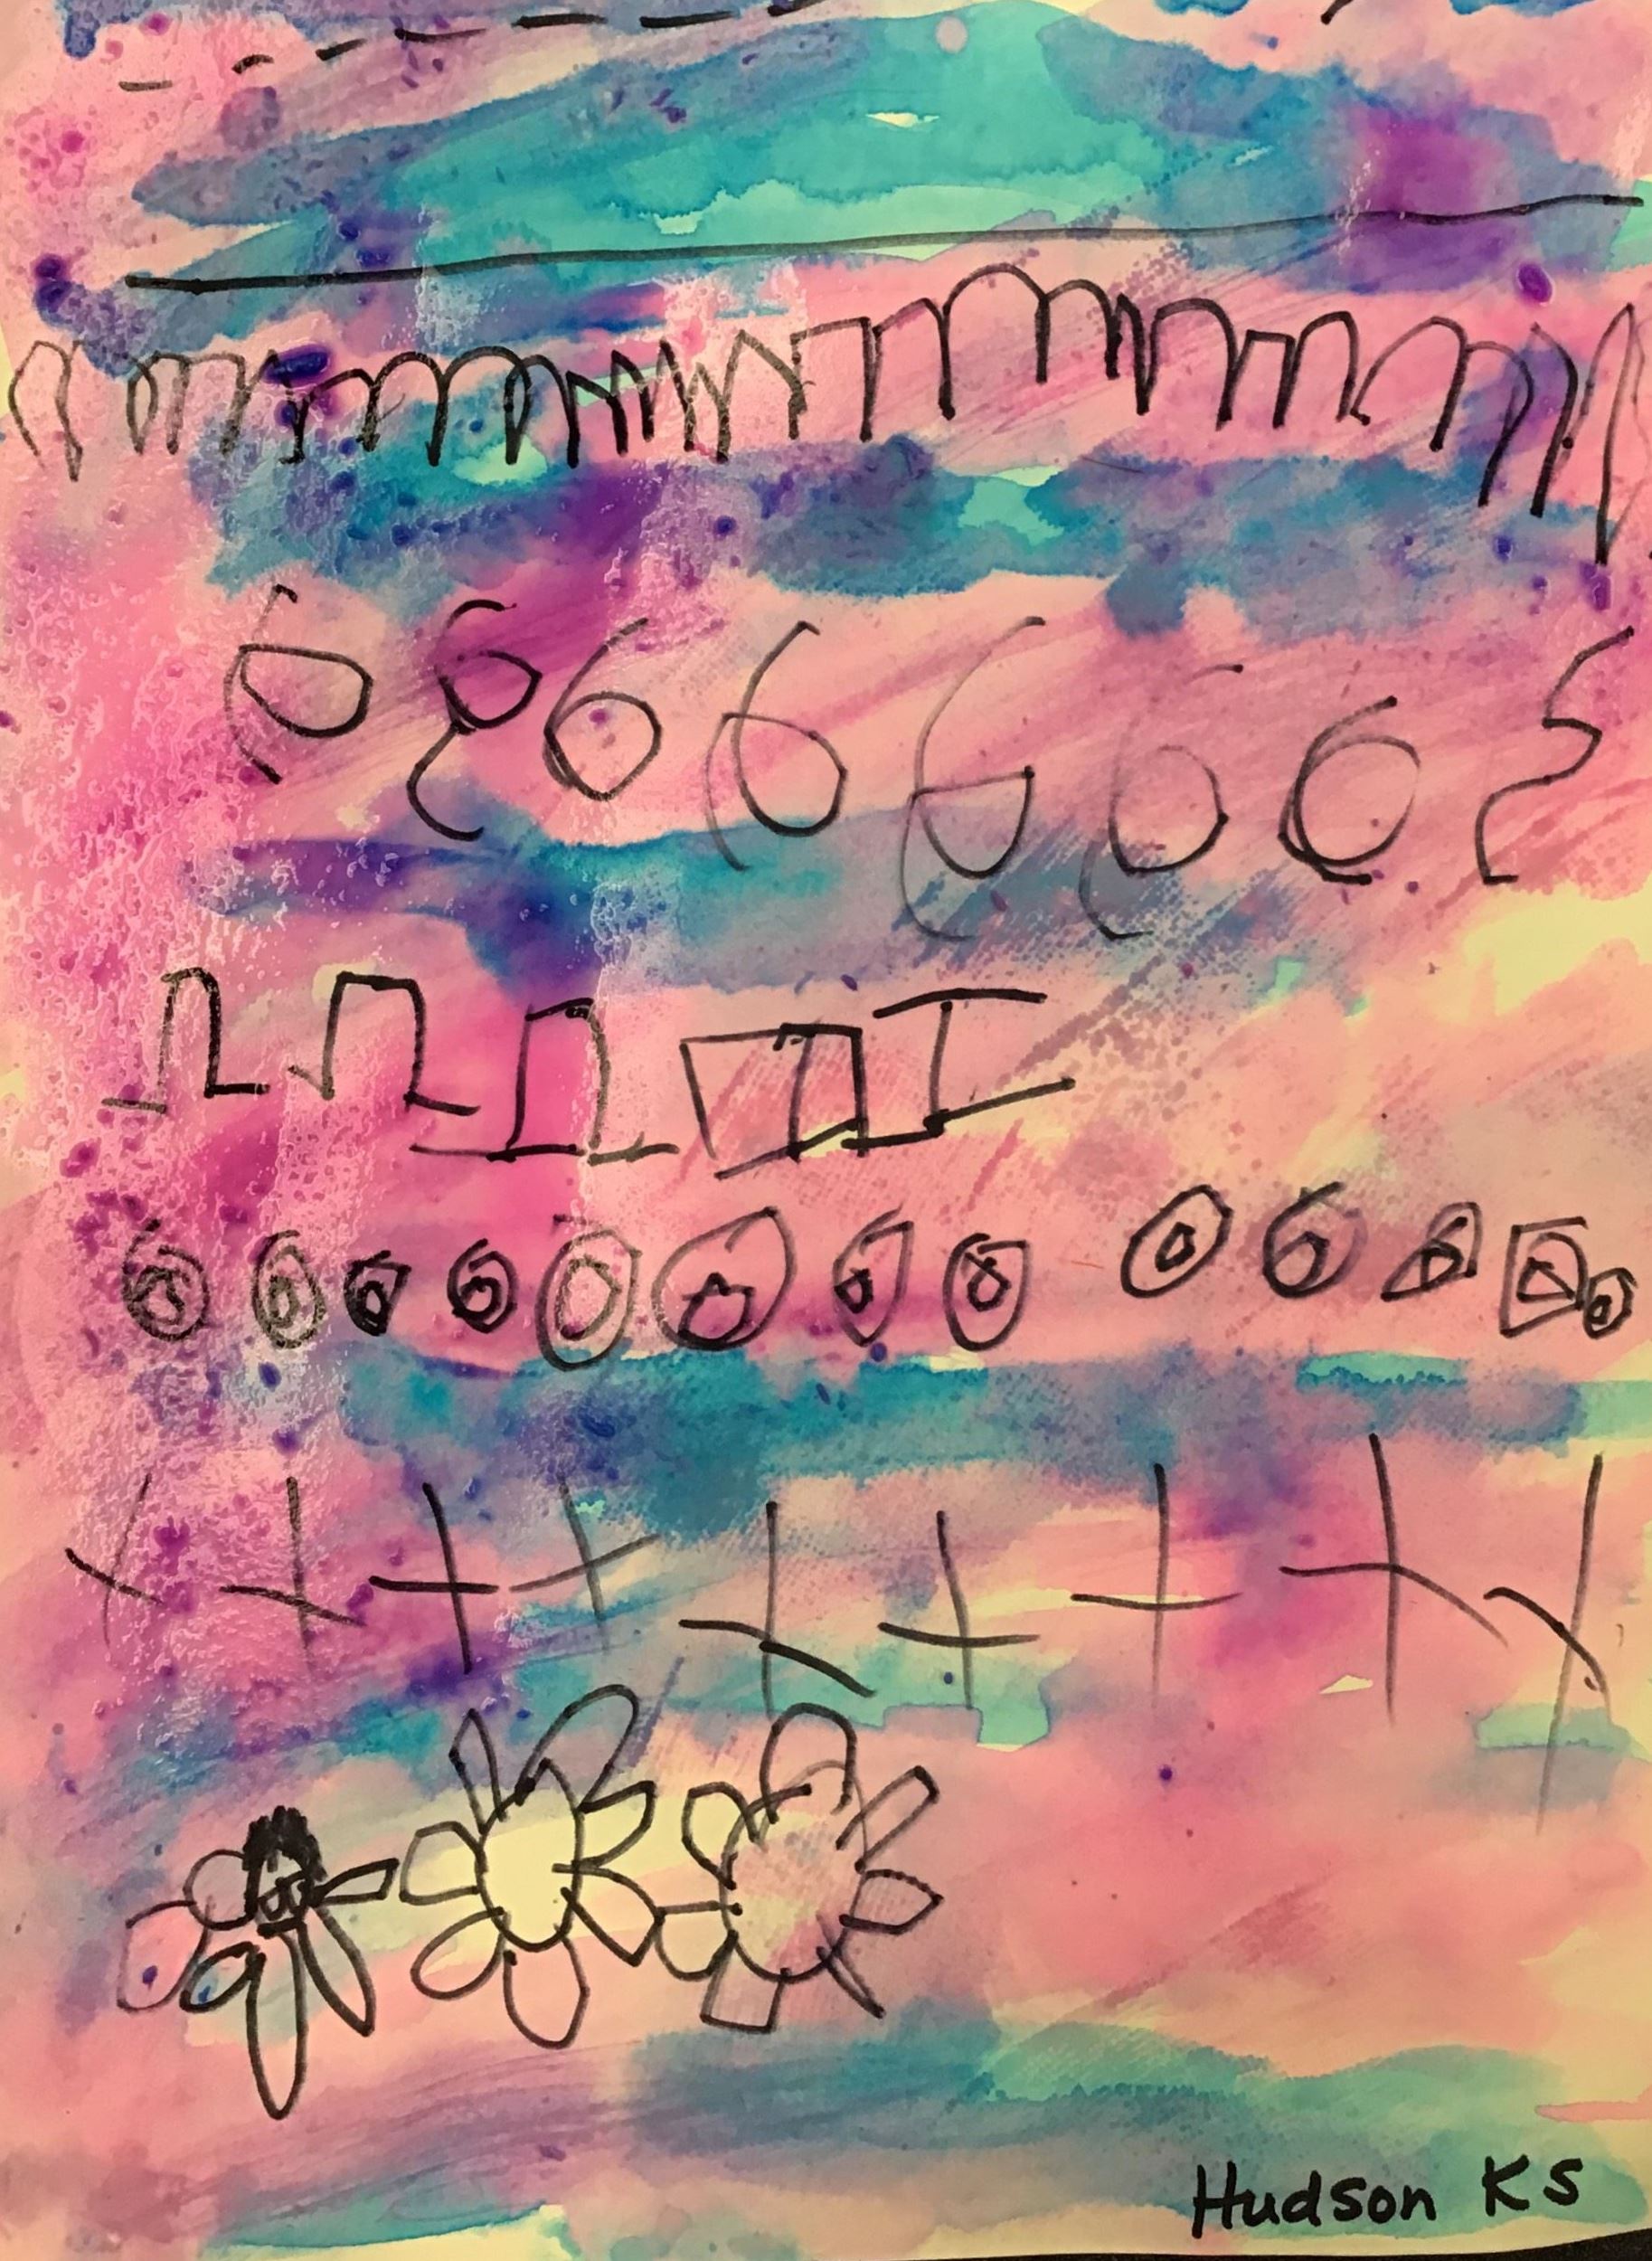 Hudson KS